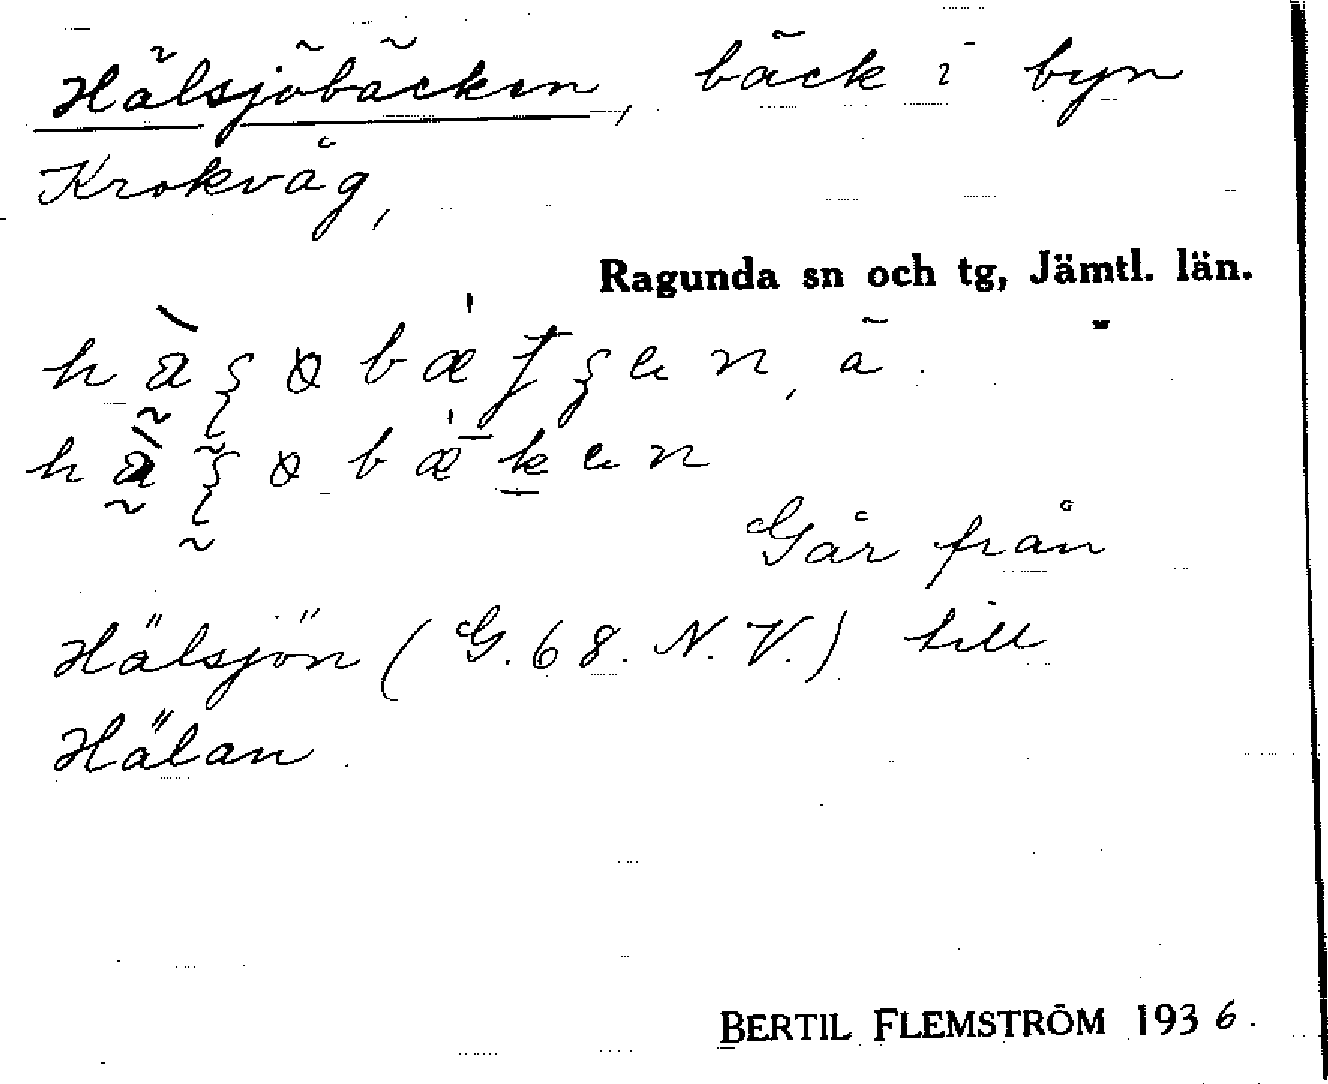 Hälsjöbäcken, bäck i byn
Krokvåg,
Ragunda sn och tg, Jämtl. län.
ä.
Går från
Hälsjön (G. 68. N. V.) till
Hälan.
BERTIL FLEMSTRÖM 1936.